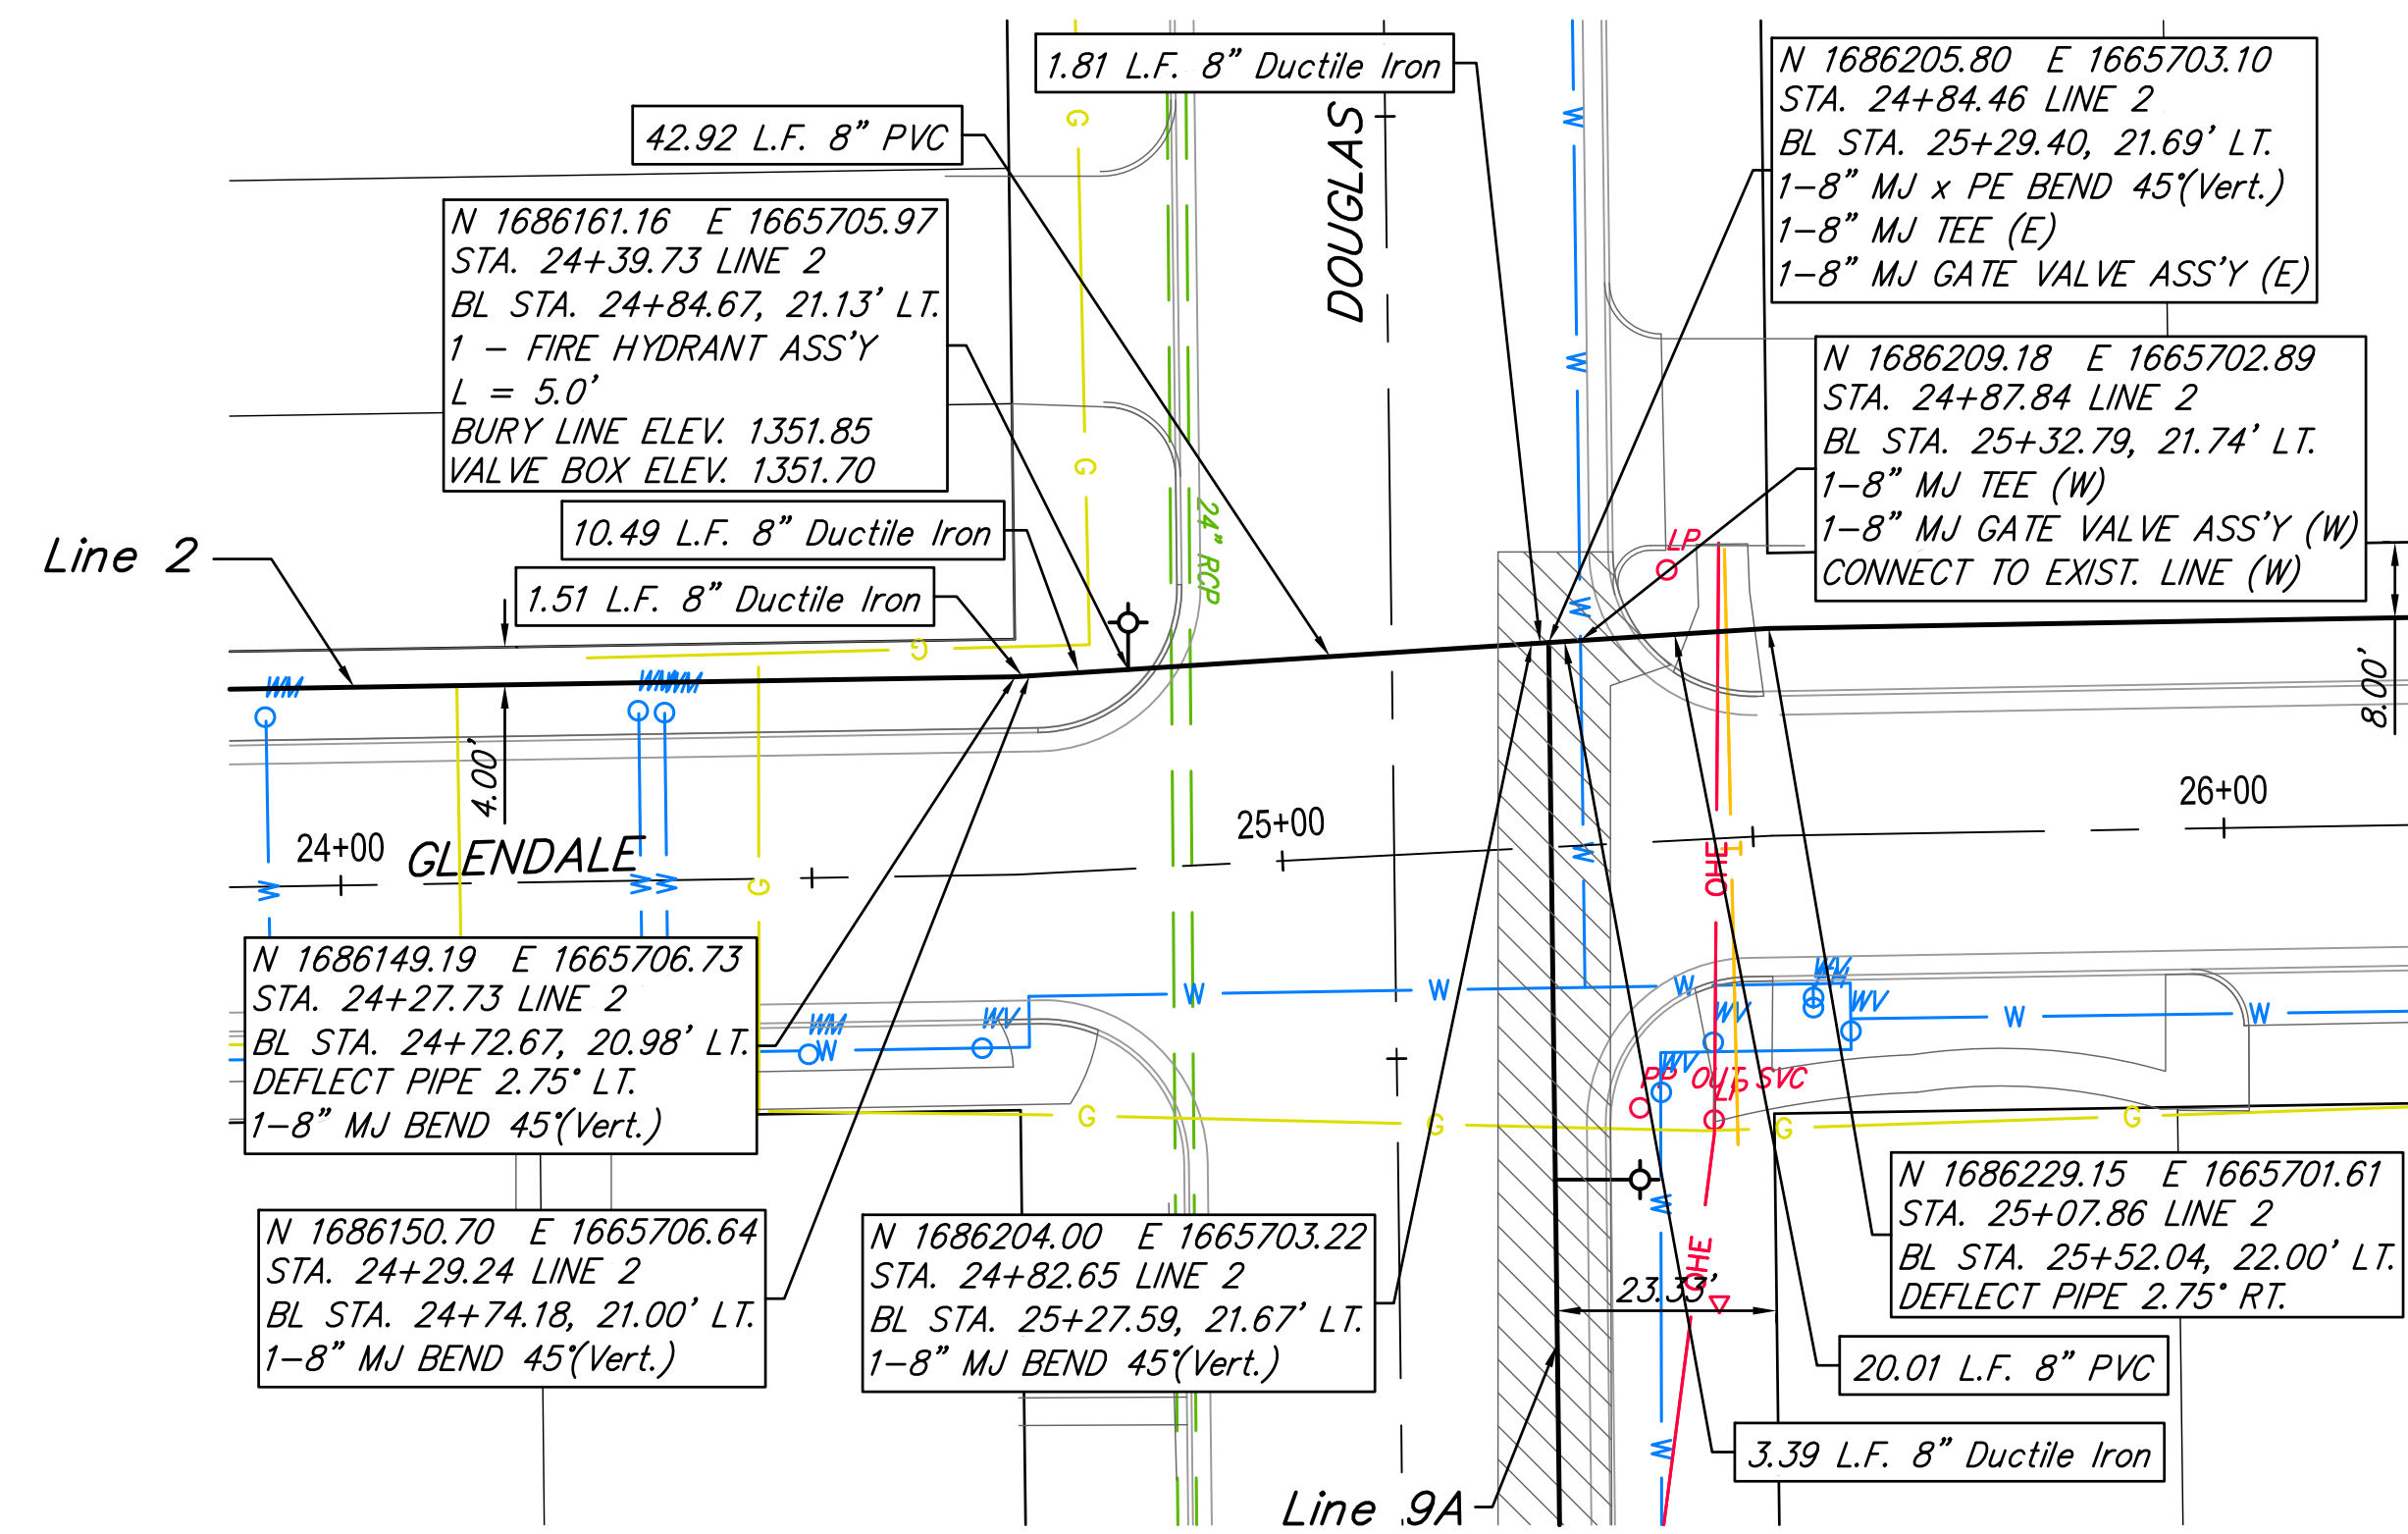 1.81 L.F. 8" Ductile Iron
42.92 L.F. 8" PVC
DOUGLAS
N 1686205.80 E 1665703.10
STA. 24+84.46 LINE 2
BL STA. 25+29.40, 21.69' LT.
1-8" MJ x PE BEND 45°(Vert.)
1-8" MJ TEE (E)
1-8" MJ GATE VALVE ASS'Y (E)
N 1686161.16 E 1665705.97
STA. 24+39.73 LINE 2
BL STA. 24+84.67, 21.13' LT.
1 - FIRE HYDRANT ASS'Y
L = 5.0'
BURY LINE ELEV. 1351.85
VALVE BOX ELEV. 1351.70
N 1686209.18 E 1665702.89
STA. 24+87.84 LINE 2
BL STA. 25+32.79, 21.74' LT.
1-8" MJ TEE (W)
1-8" MJ GATE VALVE ASS'Y (W)
CONNECT TO EXIST. LINE (W)
10.49 L.F. 8" Ductile Iron
Line 2
1.51 L.F. 8" Ductile Iron
24" RCP
LP
G
G
G
W
W
W
W
WM
WM
WM
4.00'
8.00'
24+00
GLENDALE
25+00
26+00
W
W
W
G
OHE
T
N 1686149.19 E 1665706.73
STA. 24+27.73 LINE 2
BL STA. 24+72.67, 20.98' LT.
DEFLECT PIPE 2.75° LT.
1-8" MJ BEND 45°(Vert.)
WM
W
WV
W
W
W
WV
WV
WV
W
W
WV
PP OUT SVC
LP
G
G
G
G
N 1686150.70 E 1665706.64
STA. 24+29.24 LINE 2
BL STA. 24+74.18, 21.00' LT.
1-8" MJ BEND 45°(Vert.)
N 1686204.00 E 1665703.22
STA. 24+82.65 LINE 2
BL STA. 25+27.59, 21.67' LT.
1-8" MJ BEND 45°(Vert.)
W
OHE
23.33'
N 1686229.15 E 1665701.61
STA. 25+07.86 LINE 2
BL STA. 25+52.04, 22.00' LT.
DEFLECT PIPE 2.75° RT.
20.01 L.F. 8" PVC
W
3.39 L.F. 8" Ductile Iron
Line 9A